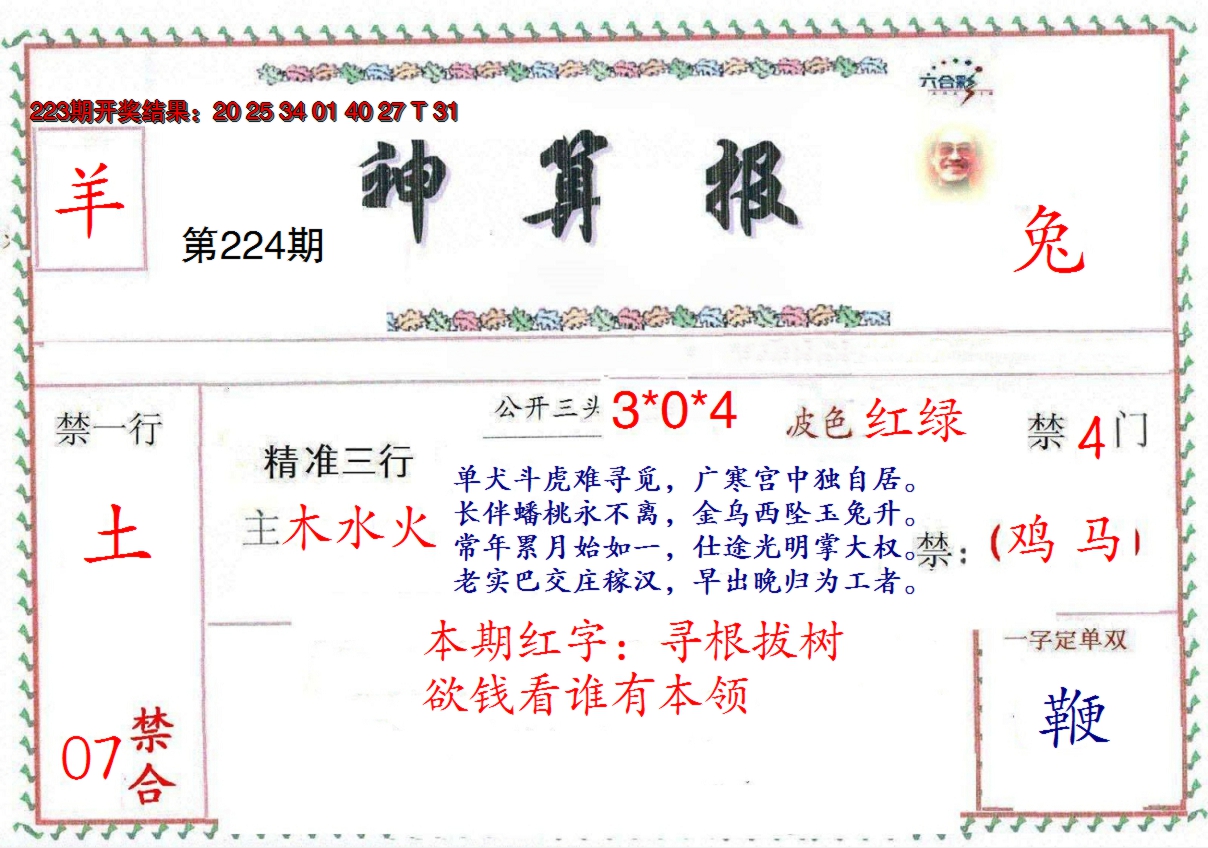 六合彩
223期开奖结果：20 25 34 01 40 27 T 31
羊
神算报
第224期
兔
禁一行
土
07
禁合
公开三头 3*0*4
波色 红绿
禁 4 门
精准三行
主木水火
单犬斗虎难寻觅，广寒宫中独自居。
长伴蟠桃永不离，金乌西坠玉兔升。
常年累月始如一，仕途光明掌大权。
老实巴交庄稼汉，早出晚归为工者。
禁：（鸡 马）
本期红字：寻根拔树
欲钱看谁有本领
一字定单双
鞭